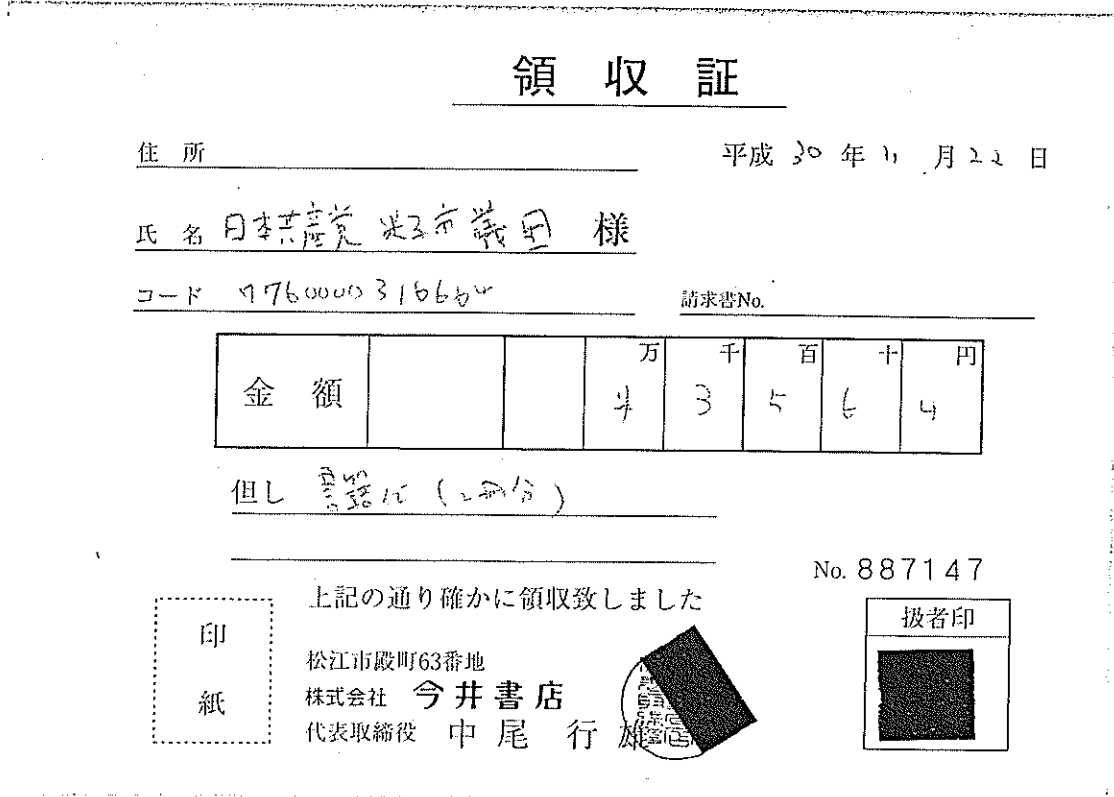 領収証
住所
平成 30 年 11 月 22 日
氏名 日本共産党 米子市議団 様
コード
請求書No.
金額 万 千 百 十 円
¥ 3 5 6 4
但し 書籍代 (2冊分)
No. 887147
上記の通り確かに領収致しました
印紙
扱者印
松江市殿町63番地
株式会社 今井書店
代表取締役 中尾 行雄